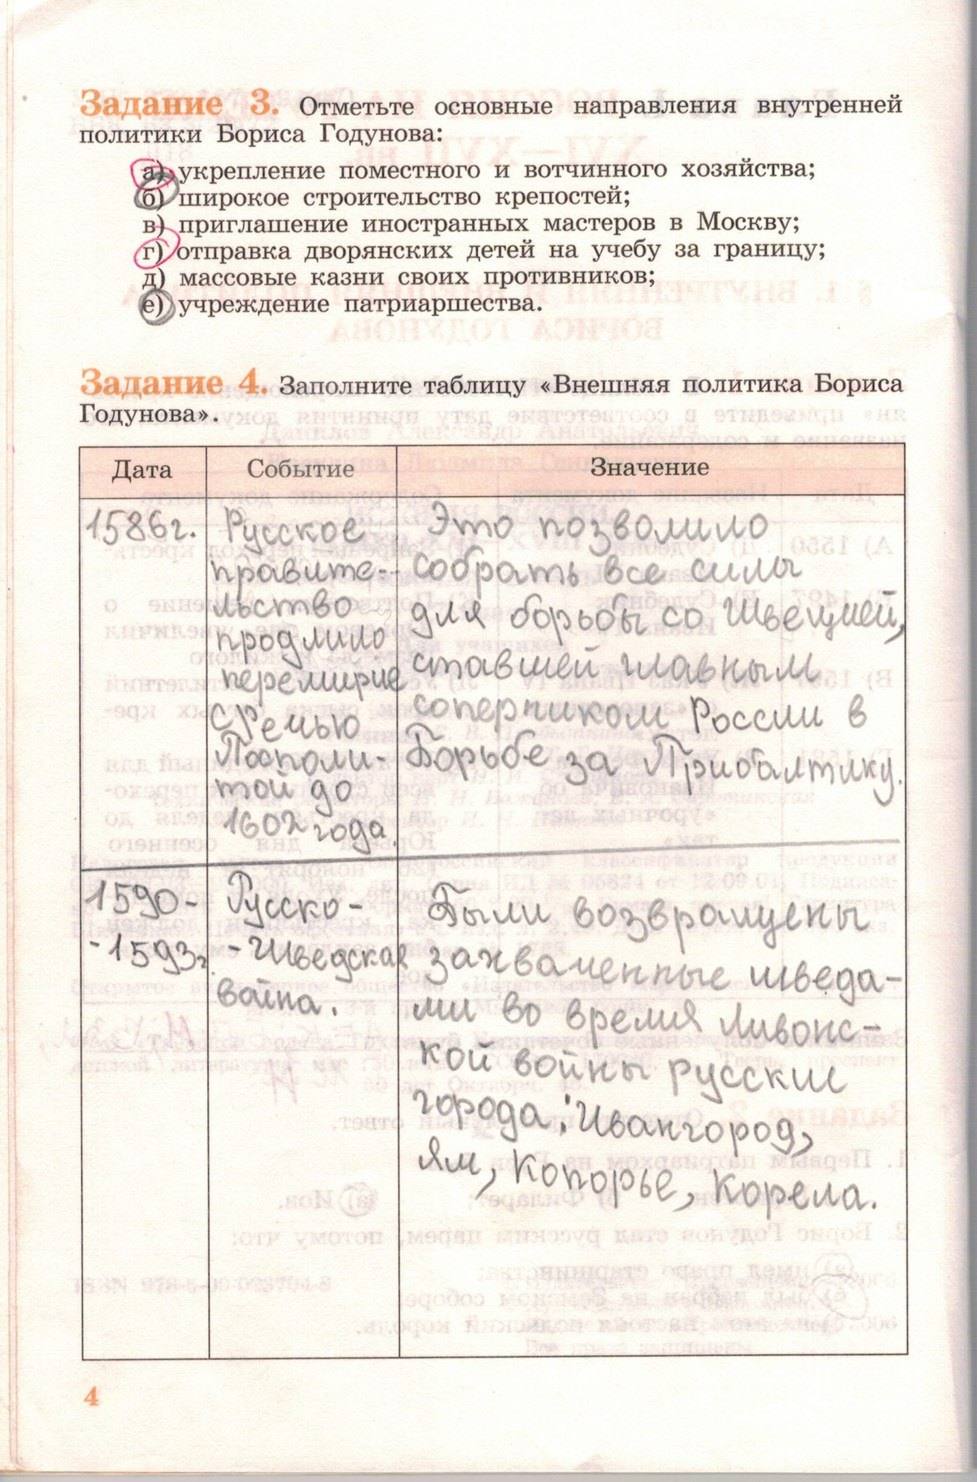 Задание 3. Отметьте основные направления внутренней
политики Бориса Годунова:
а) укрепление поместного и вотчинного хозяйства;
б) широкое строительство крепостей;
в) приглашение иностранных мастеров в Москву;
г) отправка дворянских детей на учебу за границу;
д) массовые казни своих противников;
е) учреждение патриаршества.
Задание 4. Заполните таблицу «Внешняя политика Бориса
Годунова».
Дата Событие Значение
1586г.
Русское
правите-
льство
продлило
перемирие
с Речью
Посполи-
той до
1602 года
Это позволило
собрать все силы
для борьбы со Швецией,
ставшей главным
соперником России в
Борьбе за Прибалтику.
1590-
-1593г.
Русско-
-Шведская
война.
Были возвращены
захваченные шведа-
ми во время Ливонс-
кой войны русские
города: Ивангород,
Ям, Копорье, Корела.
4